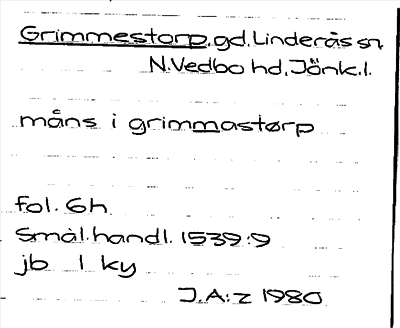 Grimmestorp. gd. Linderås sn
N. Vedbo hd, Jönk. l.
måns i grimmastørp
fol. 6h
Smål. handl. 1539:9
jb 1 ky
J.A:z 1980